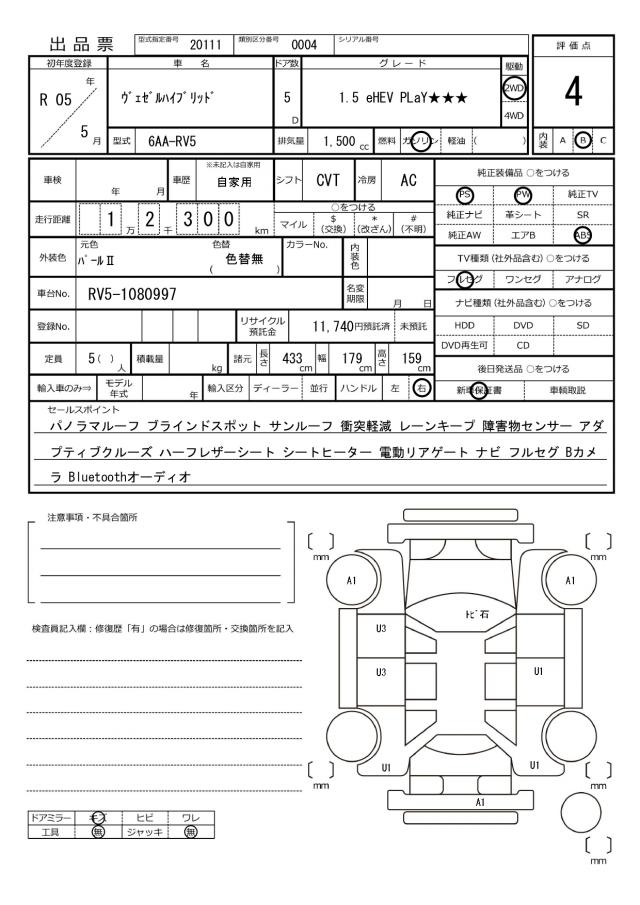 出品票 型式指定番号 20111 類別区分番号 0004 シリアル番号
評価点
4
内装 A B C
初年度登録 車名 ドア数 グレード 駆動
R 05 年 5 月
ｳﾞｪｾﾞﾙﾊｲﾌﾞﾘｯﾄﾞ 5 D 1.5 eHEV PLaY★★★ 2WD
4WD
型式 6AA-RV5 排気量 1,500 cc 燃料 ガソリン 軽油 ( )
車検 年 月 車歴 ※未記入は自家用 自家用 シフト CVT 冷房 AC
走行距離 1 万 2 千 3 0 0 km ○をつける
マイル $ (交換) * (改ざん) # (不明)
外装色 元色 ﾊﾟｰﾙⅡ 色替 ( 色替無 ) カラーNo. 内装色
車台No. RV5-1080997 名変期限 月 日
登録No. リサイクル預託金 11,740円預託済 未預託
定員 5 ( ) 人 積載量 kg 諸元 長さ 433 cm 幅 179 cm 高さ 159 cm
輸入車のみ⇒ モデル年式 年 輸入区分 ディーラー 並行 ハンドル 左 右
純正装備品 ○をつける
PS PW 純正TV
純正ナビ 革シート SR
純正AW エアB ABS
TV種類 (社外品含む) ○をつける
フルセグ ワンセグ アナログ
ナビ種類 (社外品含む) ○をつける
HDD DVD SD
DVD再生可 CD
後日発送品 ○をつける
新車保証書 車輌取説
セールスポイント
パノラマルーフ ブラインドスポット サンルーフ 衝突軽減 レーンキープ 障害物センサー アダ
プティブクルーズ ハーフレザーシート シートヒーター 電動リアゲート ナビ フルセグ Bカメ
ラ Bluetoothオーディオ
注意事項・不具合箇所
検査員記入欄：修復歴「有」の場合は修復箇所・交換箇所を記入
ドアミラー キズ ヒビ ワレ
工具 無 ジャッキ 無
mm mm
A1 A1
ﾄﾋﾞ石
U3
U3 U1
U1 U1
mm mm
A1
mm